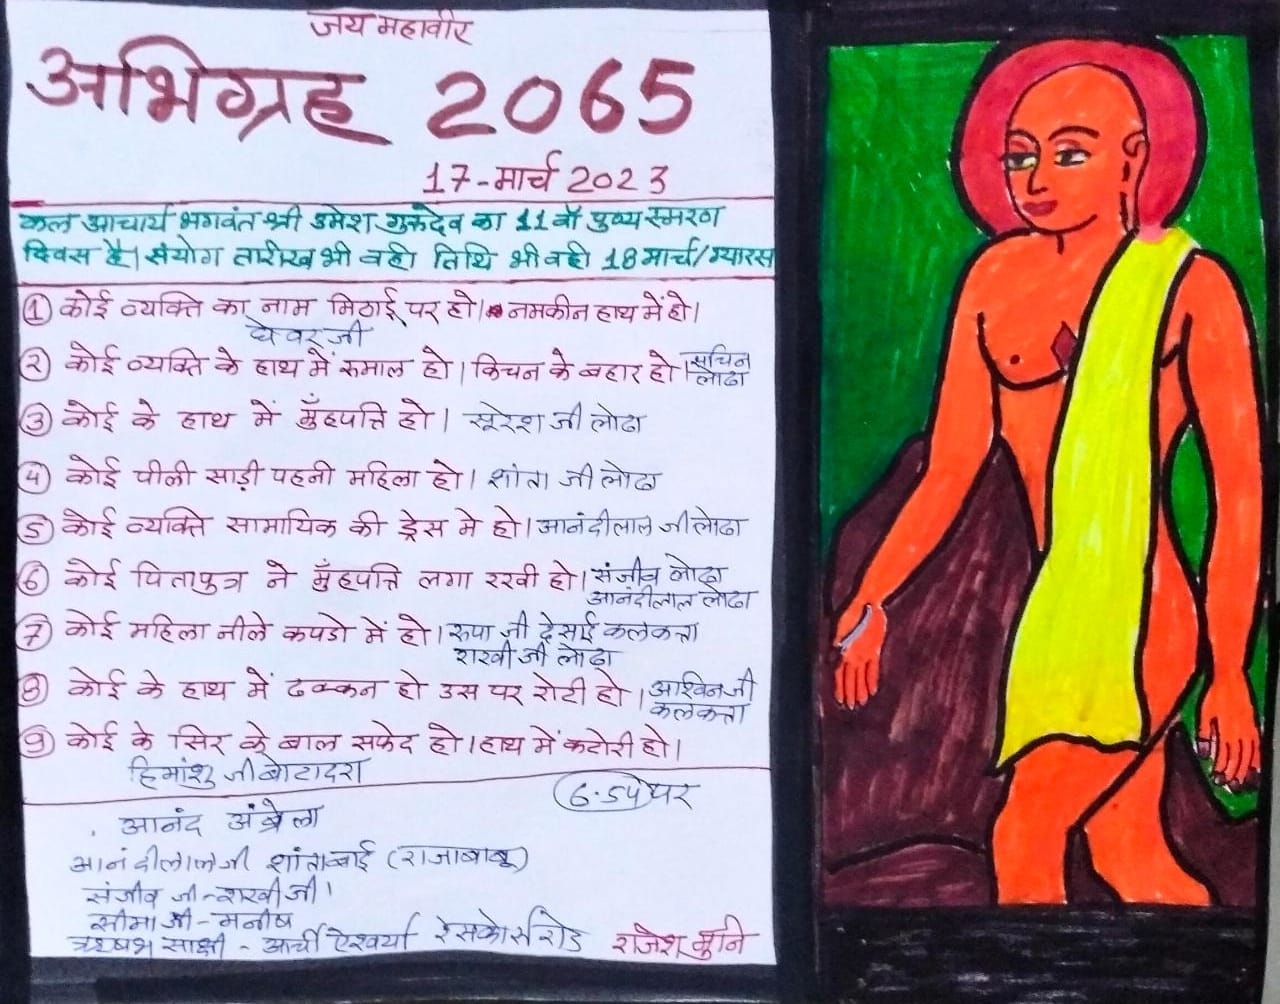 जय महावीर
अभिग्रह 2065
17-मार्च 2023
कल आचार्य भगवंत श्री उमेश गुरुदेव का 11 वाँ पुण्य स्मरण
दिवस है। संयोग तारीख भी वही तिथि भी वही 18 मार्च/ग्यारस
① कोई व्यक्ति का नाम मिठाई पर हो। नमकीन हाथ में हो।
घेवर जी
② कोई व्यक्ति के हाथ में रुमाल हो। किचन के बहार हो। सचिन
लोढा
③ कोई के हाथ में मुँहपत्ति हो। सूरेश जी लोढा
④ कोई पीली साड़ी पहनी महिला हो। शांता जी लोढा
⑤ कोई व्यक्ति सामायिक की ड्रेस मे हो। आनंदीलाल जी लोढा
⑥ कोई पितापुत्र ने मुँहपत्ति लगा रखी हो। संजीव लोढा
आनंदीलाल लोढा
⑦ कोई महिला नीले कपडो में हो। रुपा जी देसाई कलकत्ता
राखी जी लोढा
⑧ कोई के हाथ में ढक्कन हो उस पर रोटी हो। आश्विन जी
कलकत्ता
⑨ कोई के सिर के बाल सफेद हो। हाथ में कटोरी हो।
हिमांशु जी बोटादरा
6.54 पर
आनंद अंब्रेला
आनंदीलालजी शांताबाई (राजाबाबू)
संजीव जी-राखी जी।
सीमा जी-मनीष
ऋषभ साक्षी - आर्ची ऐश्वर्या रेसकोर्स रोड राजेश मुनि